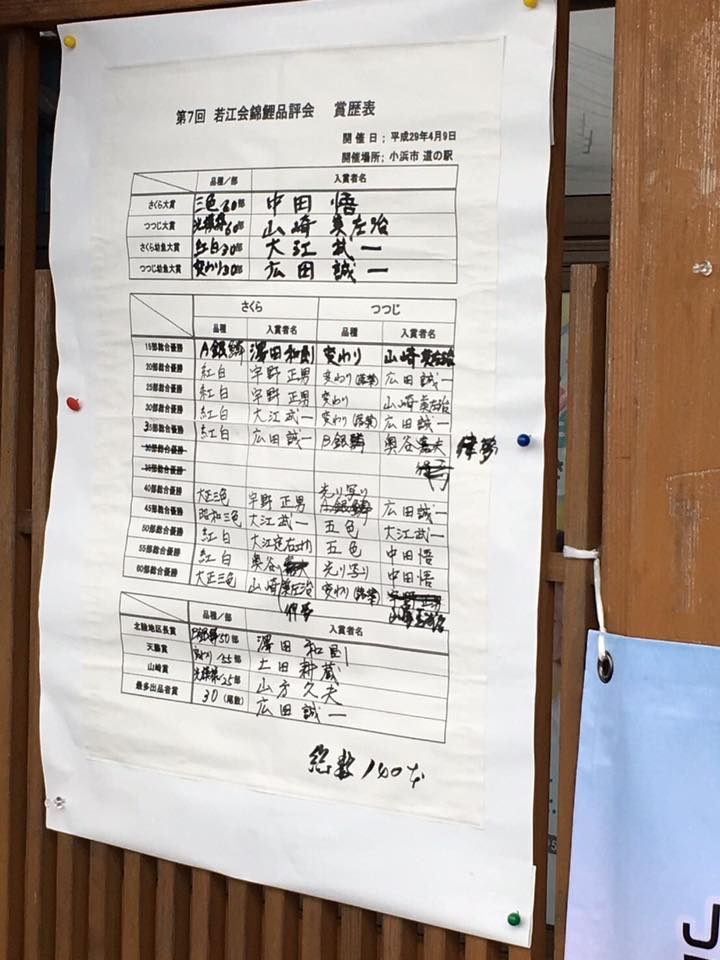 第7回 若江会錦鯉品評会 賞歴表
開催日；平成29年4月9日
開催場所；小浜市 道の駅
品種／部 入賞者名
さくら大賞 三色60部 中田 悟
つつじ大賞 光模様60部 山崎 英左治
さくら幼魚大賞 紅白30部 大江 武一
つつじ幼魚大賞 変わり30部 広田 誠一
さくら つつじ
品種 入賞者名 品種 入賞者名
15部総合優勝 A銀鱗 澤田和則 変わり 山崎英左治
20部総合優勝 紅白 宇野正男 変わり(落葉) 広田誠一
25部総合優勝 紅白 宇野正男 変わり 山崎英左治
30部総合優勝 紅白 大江武一 変わり(落葉) 広田誠一
35部総合優勝 紅白 広田誠一 B銀鱗 奥谷 偉夢
30部総合優勝
35部総合優勝
40部総合優勝 大正三色 宇野正男 光り写り 広田誠一
45部総合優勝 昭和三色 大江武一 五色 大江武一
50部総合優勝 紅白 五色 中田悟
55部総合優勝 紅白 奥谷 偉夢 光り写り 中田悟
60部総合優勝 大正三色 山崎英左治 変わり(落葉) 山崎英左治
品種／部 入賞者名
北陸地区長賞 B銀鱗／50部 澤田 和則
天賜賞 変わり／55部 土田 耕蔵
山崎賞 光模様／25部 山方久夫
最多出品者賞 30(尾数) 広田誠一
総数 140本
J